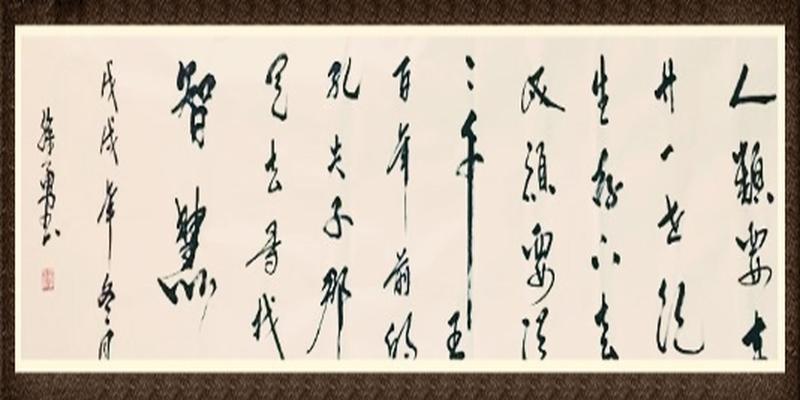 人類要在
廿一世紀
生存下去
必須要從
二千五
百年前的
孔夫子那
里去尋找
智慧
戊戌年冬月
徐勇書